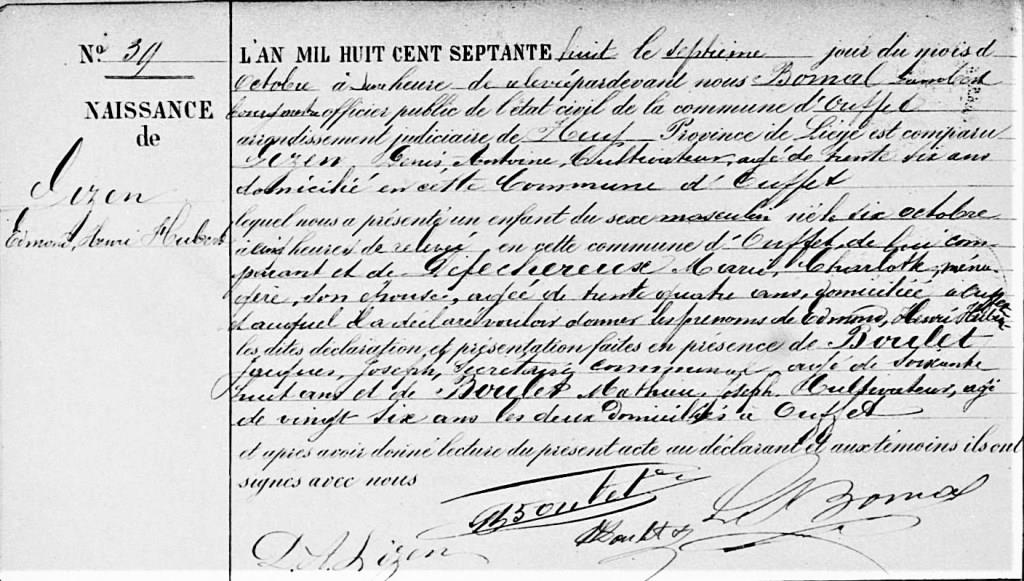 N° 39
NAISSANCE
de
Lizen
Edmond, Henri Hubert
L'AN MIL HUIT CENT SEPTANTE huit le septième jour du mois d
Octobre à heure de relevée pardevant nous Bomal Lambert
officier public de l'état civil de la commune d'Ouffet
arrondissement judiciaire de Huy Province de Liège est comparu
Lizen, Denis Antoine, Cultivateur, agé de trente six ans
domicilié en cette Commune d'Ouffet
lequel nous a présenté un enfant du sexe masculin né le six octobre
à heures de relevée, en cette commune d'Ouffet, de lui com-
parant et de Defechereux Marie, Charlotte, ména-
gère, son épouse, agée de trente quatre ans, domiciliée à Ouffet
et auquel il a déclaré vouloir donner les prénoms de Edmond, Henri Hubert
les dites déclaration et présentation faites en présence de Boulet
Jacques, Joseph, Secrétaire communal, agé de soixante
huit ans et de Boulet Mathieu, Joseph, Cultivateur, agé
de vingt six ans les deux domiciliés à Ouffet
et après avoir donné lecture du présent acte au déclarant et aux témoins ils ont
signés avec nous
Boulet
Boulet J
L Bomal
D. A. Lizen